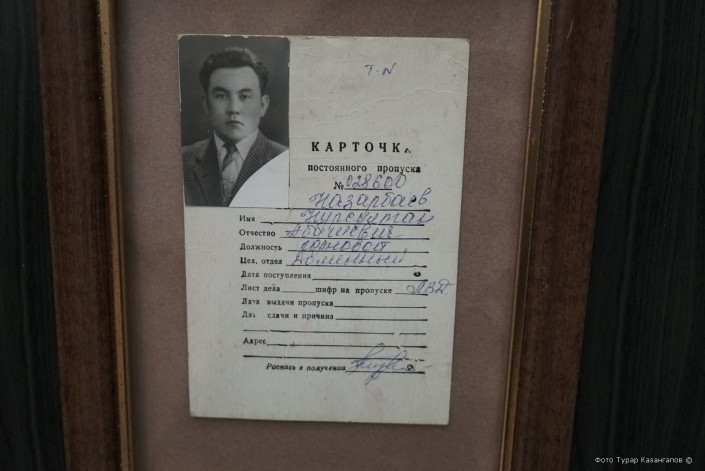 Т. N
КАРТОЧКА
постоянного пропуска
№ 028600
Назарбаев
Имя Нурсултан
Отчество Абишевич
Должность горновой
Цех, отдел Доменный
Дата поступления
Лист дела шифр на пропуске ЛВД
Дата выдачи пропуска
Дата сдачи и причина
Адрес
Роспись в получении
Фото Турар Казангапов ©